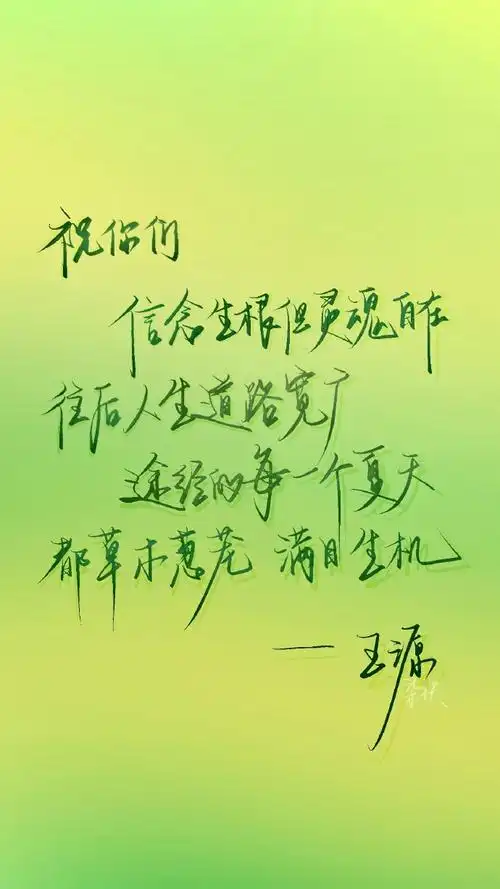 祝你们
信念生根但灵魂自在
往后人生道路宽广
途经的每一个夏天
都草木葱茏 满目生机
——王源